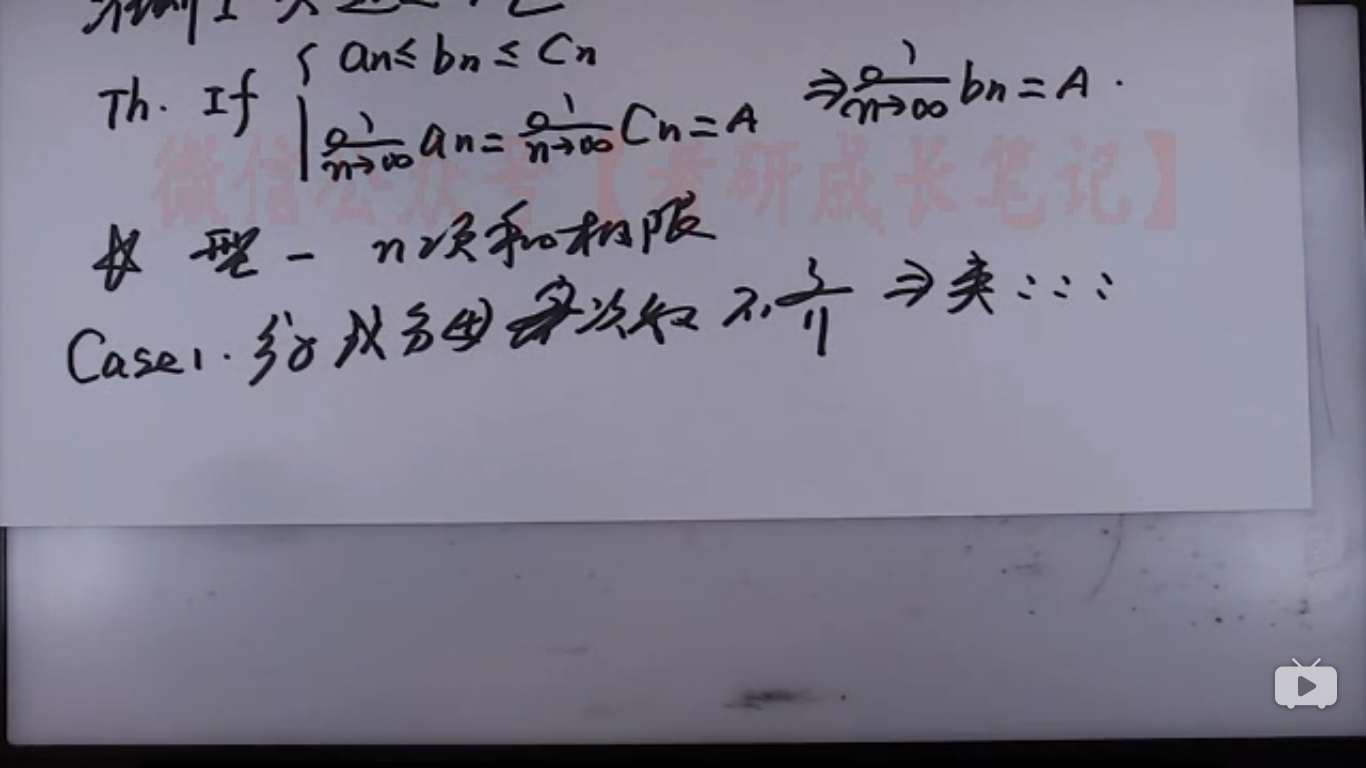 Th. If { an ≤ bn ≤ Cn
lim n→∞ an = lim n→∞ Cn = A ⇒ lim n→∞ bn = A.
微信公众号【考研成长笔记】
型一 n项和极限
Case1. 分子或分母次数不齐 ⇒ 夹